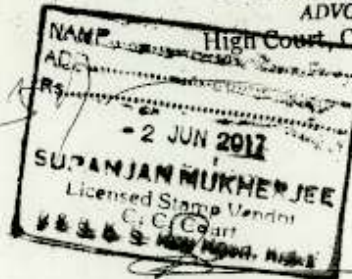 ADVO
High Court, C
NAME
ADD
Rs.
- 2 JUN 2017
SURANJAN MUKHERJEE
Licensed Stamp Vendor
C. C. Court